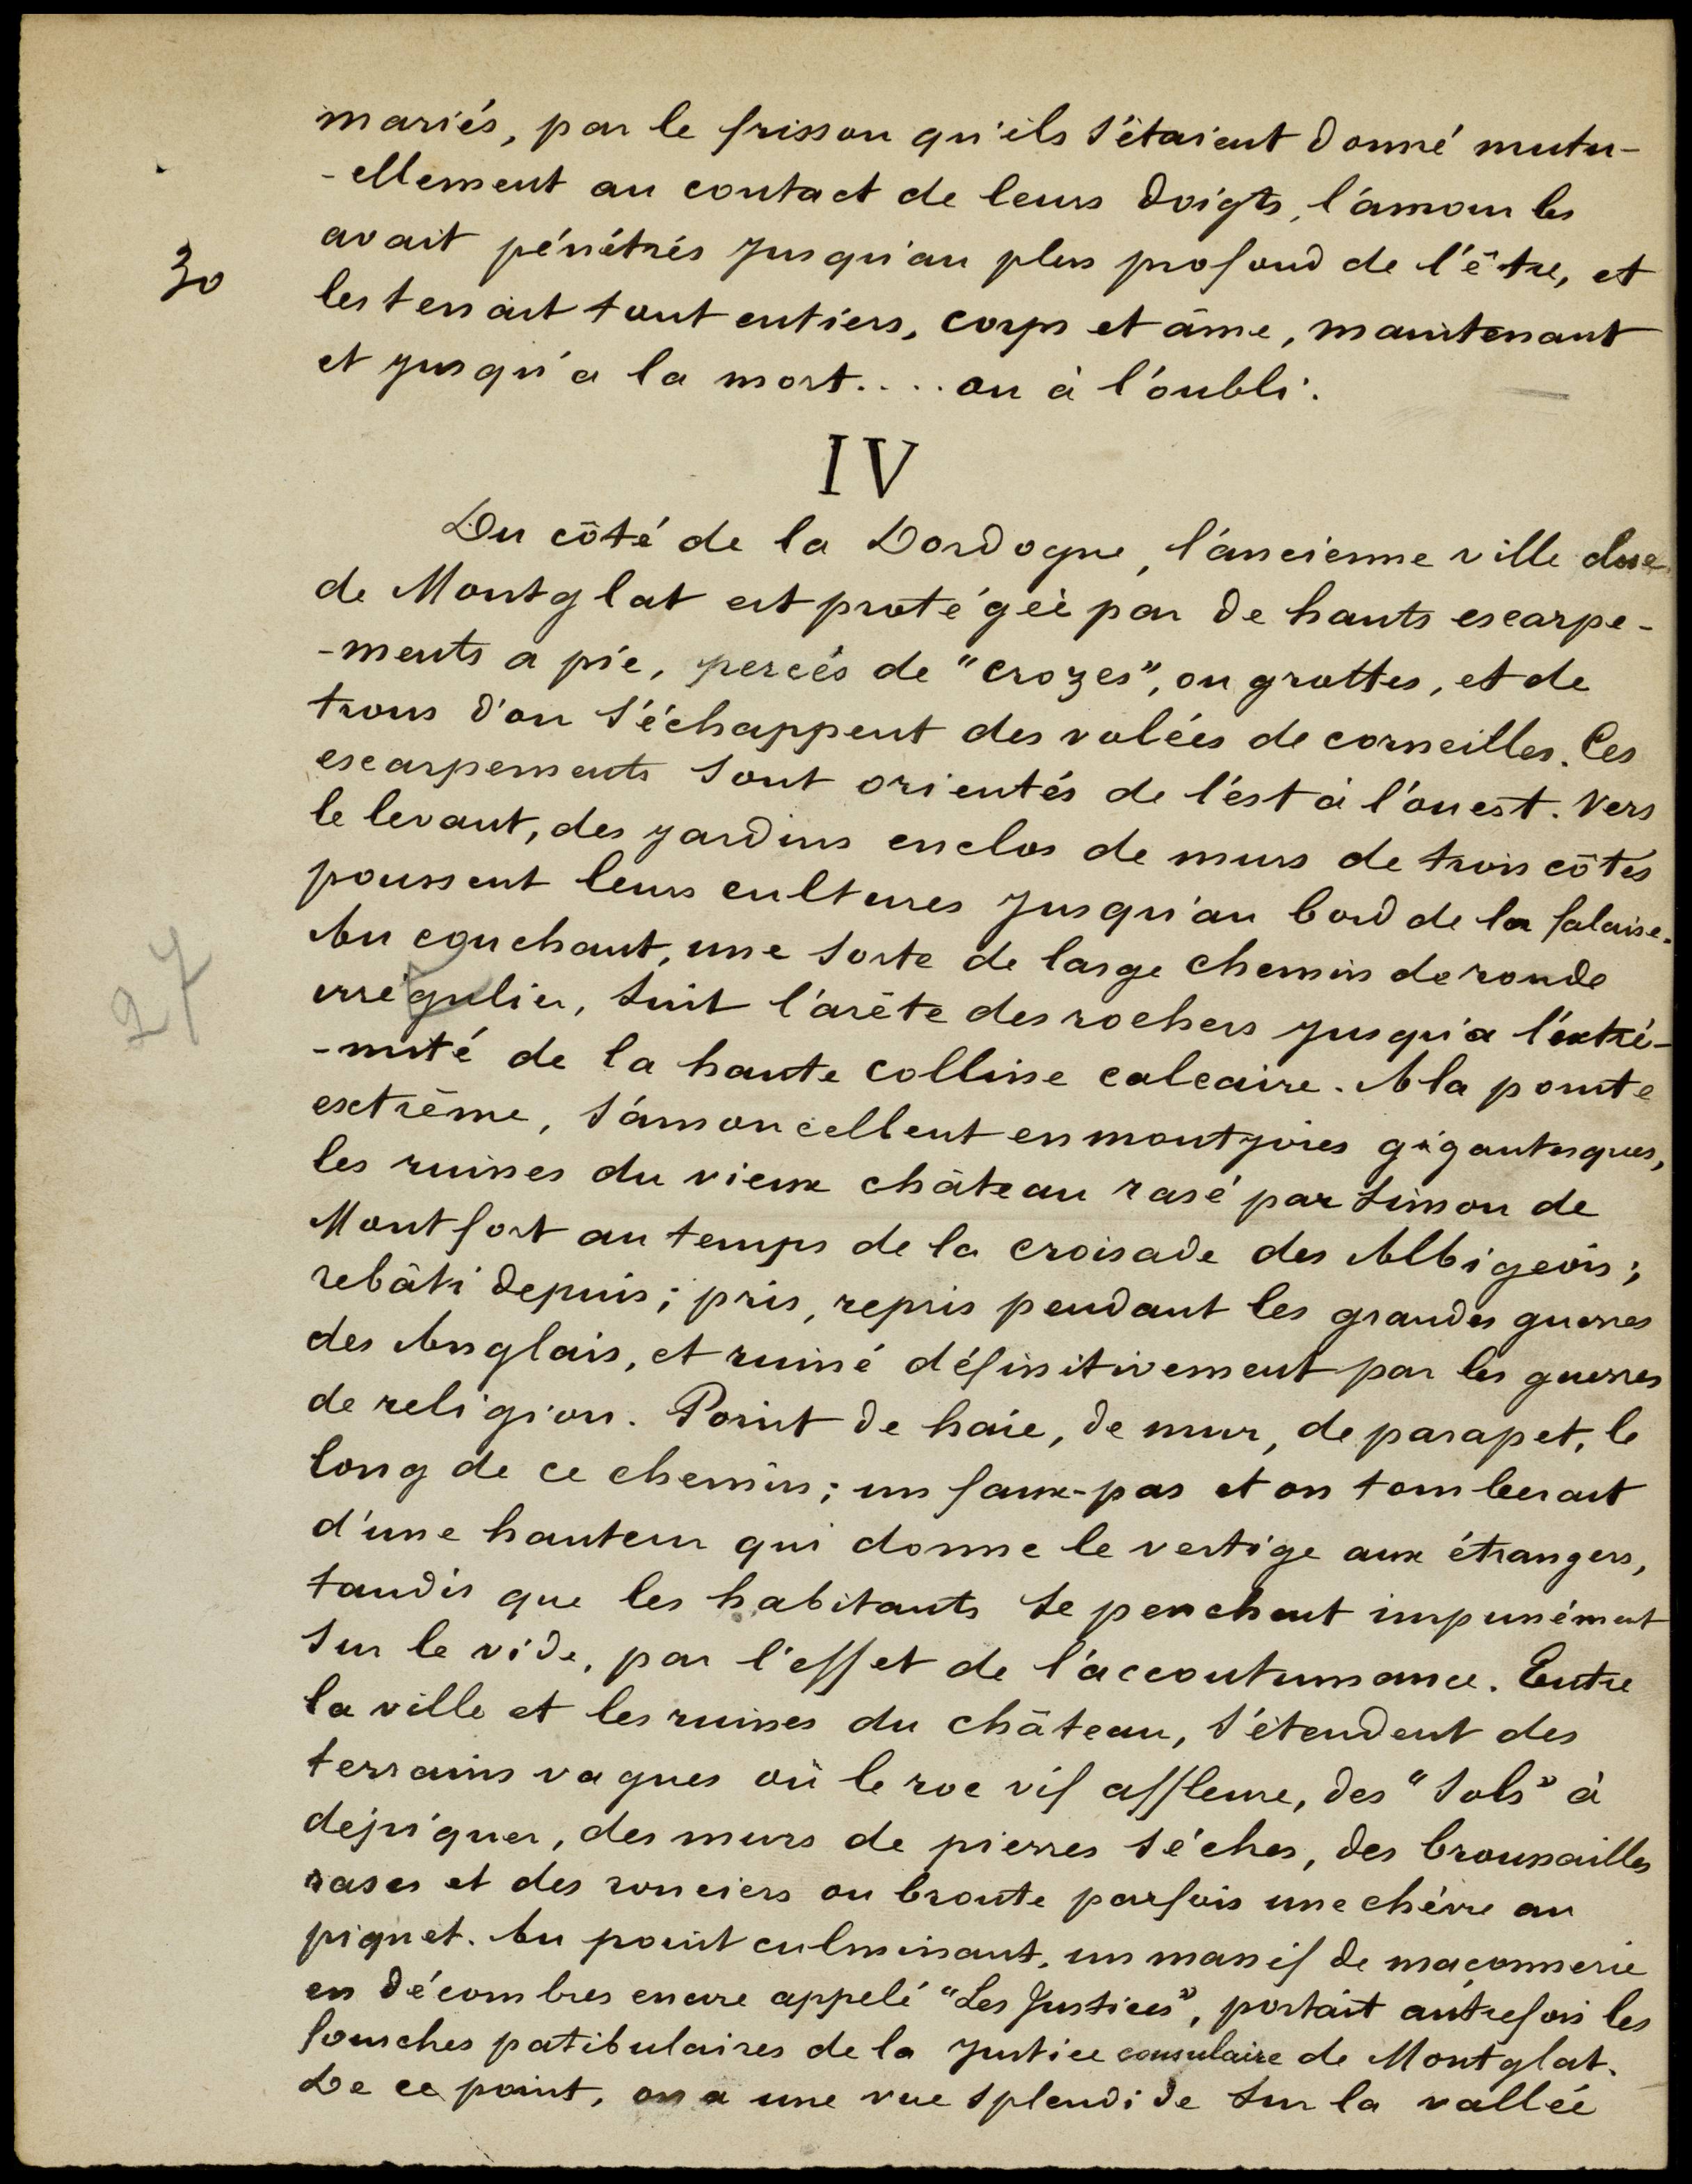 mariés, par le frisson qu'ils s'étaient donné mutu-
-ellement au contact de leurs doigts, l'amour les
avait pénétrés jusqu'au plus profond de l'être, et
30
les tenait tout entiers, corps et âme, maintenant
et jusqu'a la mort.... ou à l'oubli.
IV
Du côté de la Dordogne, l'ancienne ville close
de Montglat est protégée par de hauts escarpe-
-ments a pic, percés de "crozes", ou grottes, et de
trous d'ou s'échappent des volées de corneilles. Ces
escarpements sont orientés de l'est à l'ouest. Vers
le levant, des jardins enclos de murs de trois côtés
poussent leurs cultures jusqu'au bord de la falaise.
Au couchant, une sorte de large chemin de ronde
27
irrégulier, suit l'arête des rochers jusqu'a l'extré-
-mité de la haute colline calcaire. A la pointe
extrême, s'amoncellent en montjoies gigantesques,
les ruines du vieux château rasé par Simon de
Montfort au temps de la croisade des Albigeois;
rebâti depuis; pris, repris pendant les grandes guerres
des Anglais, et ruiné définitivement par les guerres
de religion. Point de haie, de mur, de parapet, le
long de ce chemin; un faux-pas et on tomberait
d'une hauteur qui donne le vertige aux étrangers,
tandis que les habitants se penchent impunément
sur le vide, par l'effet de l'accoutumance. Entre
la ville et les ruines du château, s'étendent des
terrains vagues où le roc vif affleure, des "sols" à
dépiquer, des murs de pierres séches, des broussailles
rases et des ronciers ou broute parfois une chévre au
piquet. Au point culminant, un massif de maçonnerie
en décombres encore appelé "Les Justices", portait autrefois les
fourches patibulaires de la justice consulaire de Montglat.
De ce point, on a une vue splendide sur la vallée